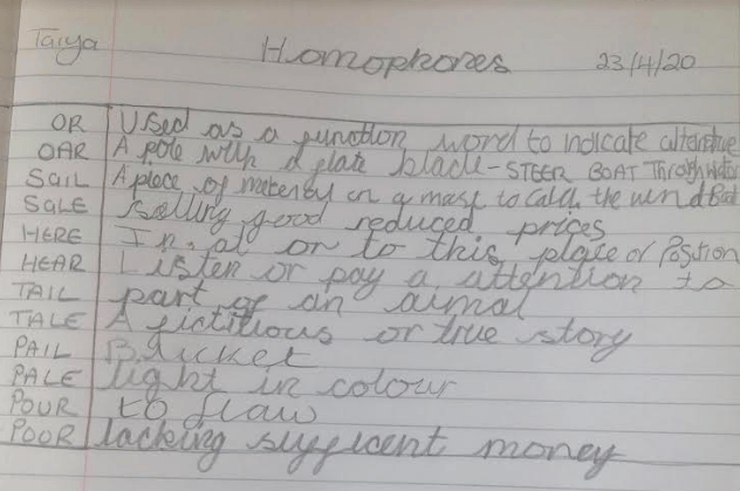 Taiya Homophones 23/4/20
OR Used as a function word to indicate alternative
OAR A pole with a flate blade - STEER BOAT Through water
SAIL A piece of on a mast to catch the wind Boat
SALE Selling good reduced prices
HERE In, at or to this place or Position
HEAR Listen or pay a attention to
TAIL part of an aimal
TALE A fictitious or true story
PAIL Bucket
PALE light in colour
POUR to flaw
POOR lacking sufficent money